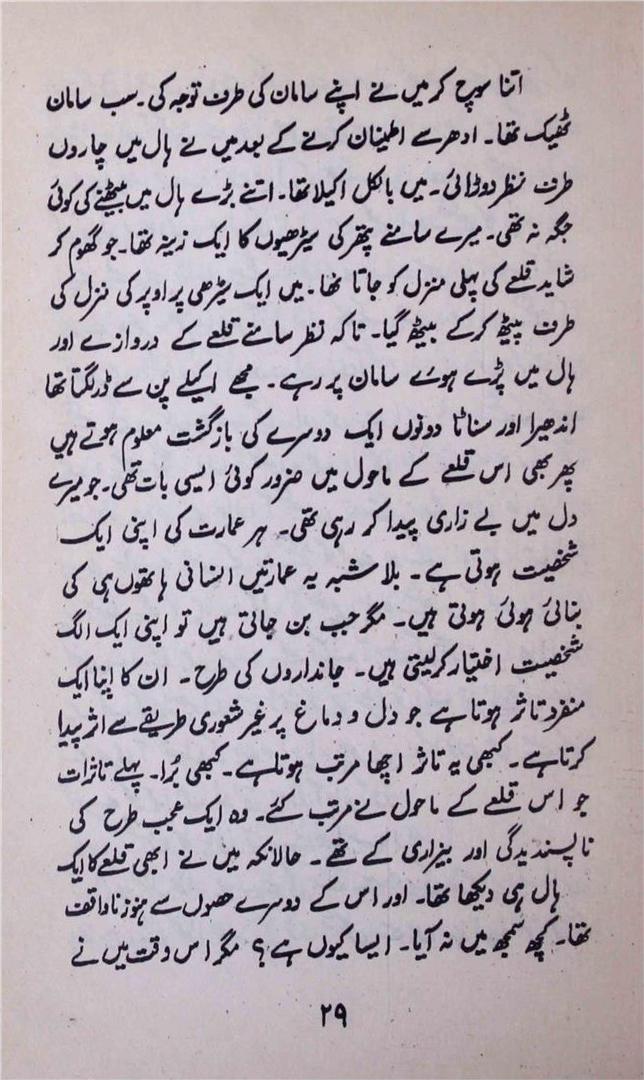 اتنا سوچ کر میں نے اپنے سامان کی طرف توجہ کی۔ سب سامان
ٹھیک تھا۔ ادھر سے اطینان کرنے کے بعد میں نے ہال میں چاروں
طرف نظر دوڑائی۔ میں بالکل اکیلا تھا۔ اتنے بڑے ہال میں بیٹھنے کی کوئی
جگہ نہ تھی۔ میرے سامنے پتھر کی سیڑھیوں کا ایک زینہ تھا۔ جو گھوم کر
شاید قلعے کی پہلی منزل کو جاتا تھا۔ میں ایک سیڑھی پر اوپر کی منزل کی
طرف پیٹھ کرکے بیٹھ گیا۔ تاکہ نظر سامنے قلعے کے دروازے اور
ہال میں پڑے ہوئے سامان پر رہے۔ مجھے اکیلے پن سے ڈر لگتا تھا
اندھیرا اور سناٹا دونوں ایک دوسرے کی بازگشت معلوم ہوتے ہیں
پھر بھی اس قلعے کے ماحول میں ضرور کوئی ایسی بات تھی۔ جو میرے
دل میں بے زاری پیدا کر رہی تھی۔ ہر عمارت کی اپنی ایک
شخصیت ہوتی ہے۔ بلا شبہ یہ عمارتیں انسانی ہاتھوں ہی کی
بنائی ہوئی ہوتی ہیں۔ مگر جب بن جاتی ہیں تو اپنی ایک الگ
شخصیت اختیار کرلیتی ہیں۔ جانداروں کی طرح۔ ان کا اپنا ایک
منفرد تاثر ہوتا ہے جو دل و دماغ پر غیر شعوری طریقے سے اثر پیدا
کرتا ہے۔ کبھی یہ تاثر اچھا مرتب ہوتا ہے۔ کبھی بُرا۔ پہلے تاثرات
جو اس قلعے کے ماحول نے مرتب کئے۔ وہ ایک عجب طرح کی
ناپسندیدگی اور بیزاری کے تھے۔ حالانکہ میں نے ابھی قلعے کا ایک
ہال ہی دیکھا تھا۔ اور اس کے دوسرے حصوں سے ہنوز ناواقف
تھا۔ کچھ سمجھ میں نہ آیا۔ ایسا کیوں ہے؟ مگر اس وقت میں نے
۲۹